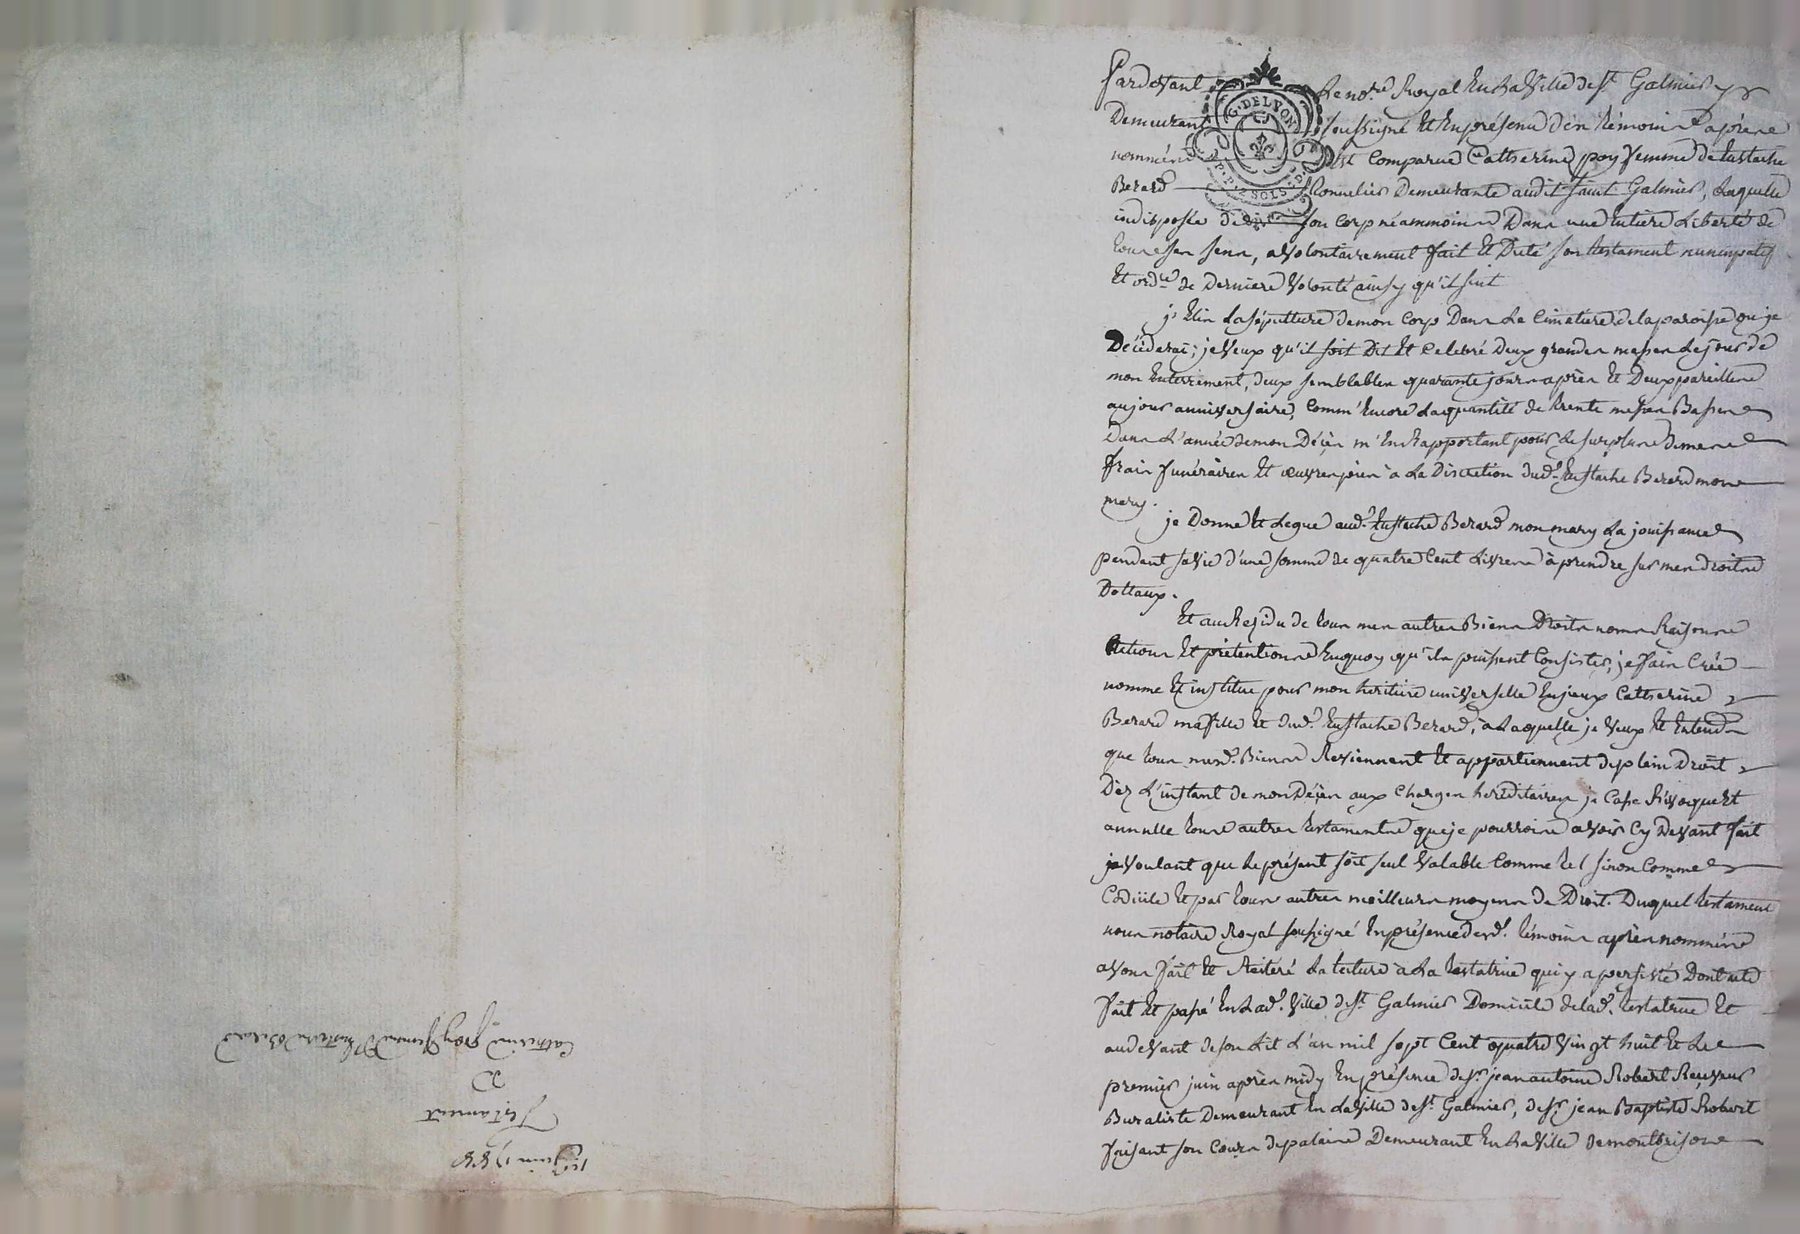 Pardevant Le no.re Royal En La Ville de St Galmier
Demeurant soussigné Et En présence d'én témoins Raprès
nommés Est Comparue Catherine poy femme de Eustache
Berard Tonnelier Demeurante audit Saint Galmier, Laquelle
indisposée de son Corp néammoins Dans une Entiere Liberté de
tous ses sens, a volontairement fait Et Dicté son testament nuncupatif
Et ord.ce de Derniere Volonté ainsy qu'il suit
j'Elis La sépulture de mon Corp Dans Le Cimetiere de la paroisse ou je
Décéderai; je veux qu'il soit Dit Et Celebré Deux grandes messes Le jour de
mon Enterrement, deux semblables quarante jours après Et Deux pareilles
au jour anniversaire, Comm'Encore La quantité de trente messes Basses
Dans L'année de mon Décès m'En Rapportant pour Le surplus de mes
frais funéraires Et œuvres pies à La Discretion dud.t Eustache Berard mon
mary.
je Donne Et Legue aud.t Eustache Berard mon mary La jouissance
pendant sa vie d'une somme de quatre Cent Livres à prendre sur mes droits
Dottaux.
Et au Rezidu de tous mes autres Biens Droits noms Raisons
Actions Et prétentions En quoy qu'ils puissent Consister, je fais Crée
nomme Et institue pour mon heritiere universelle Catherine
Berard ma fille Et dud.t Eustache Berard, à Laquelle je veux Et Entend
que tous mesd.t Biens Reviennent Et appartiennent de plein Droit
Dez L'instant de mon Décès aux Charges héréditaires je Casse Révoque Et
annulle tous autres testaments que je pourrois avoir Cy Devant fait
voulant que Le présent soit seul Valable Comme tel sinon Comme
Codicile Et par tous autres meilleurs moyens de Droit. Duquel testament
nous notaire Royal soussigné En présence desd.t témoins après nommés
avons fait Et Réitéré La lecture à La testatrice qui y a persisté Dont acte
fait Et passé En Lad.t Ville de St Galmier Domicile de lad.t testatrice Et
au devant de son Lit L'an mil sept Cent quatre Vingt huit Et Le
premier juin après midy En présence de Sr jean antoine Robert Receveur
Buraliste Demeurant En La Ville de St Galmier, de Sr jean Baptiste Robert
faisant son Cours de palais Demeurant En La Ville de montbrison
G. DE LYON
1er juin 1788
Testament
De
Catherine Poy femme d'Eustache Berard